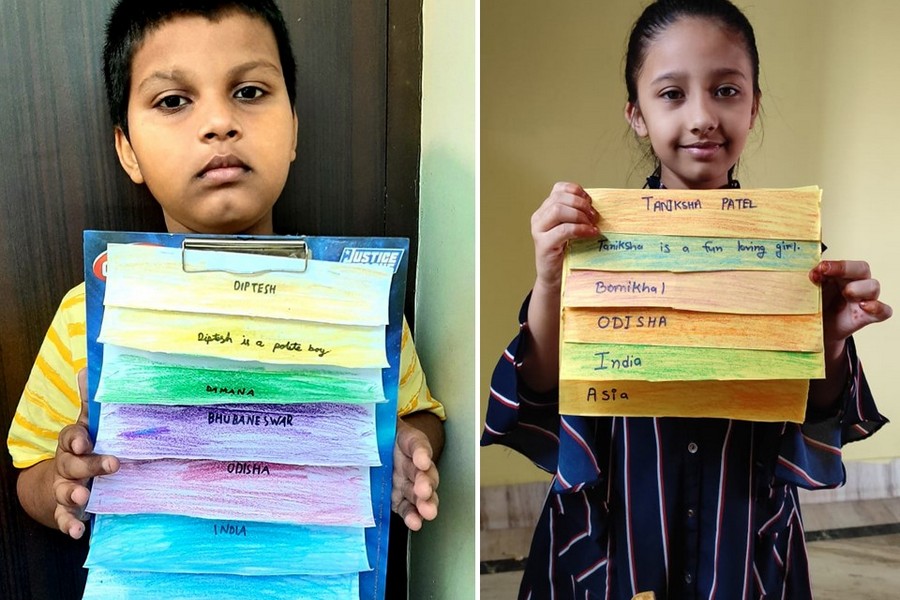 JUSTICE
DIPTESH
Diptesh is a polite boy
DAMANA
BHUBANESWAR
ODISHA
INDIA
TANIKSHA PATEL
Taniksha is a fun loving girl.
Bomikhal
ODISHA
India
Asia